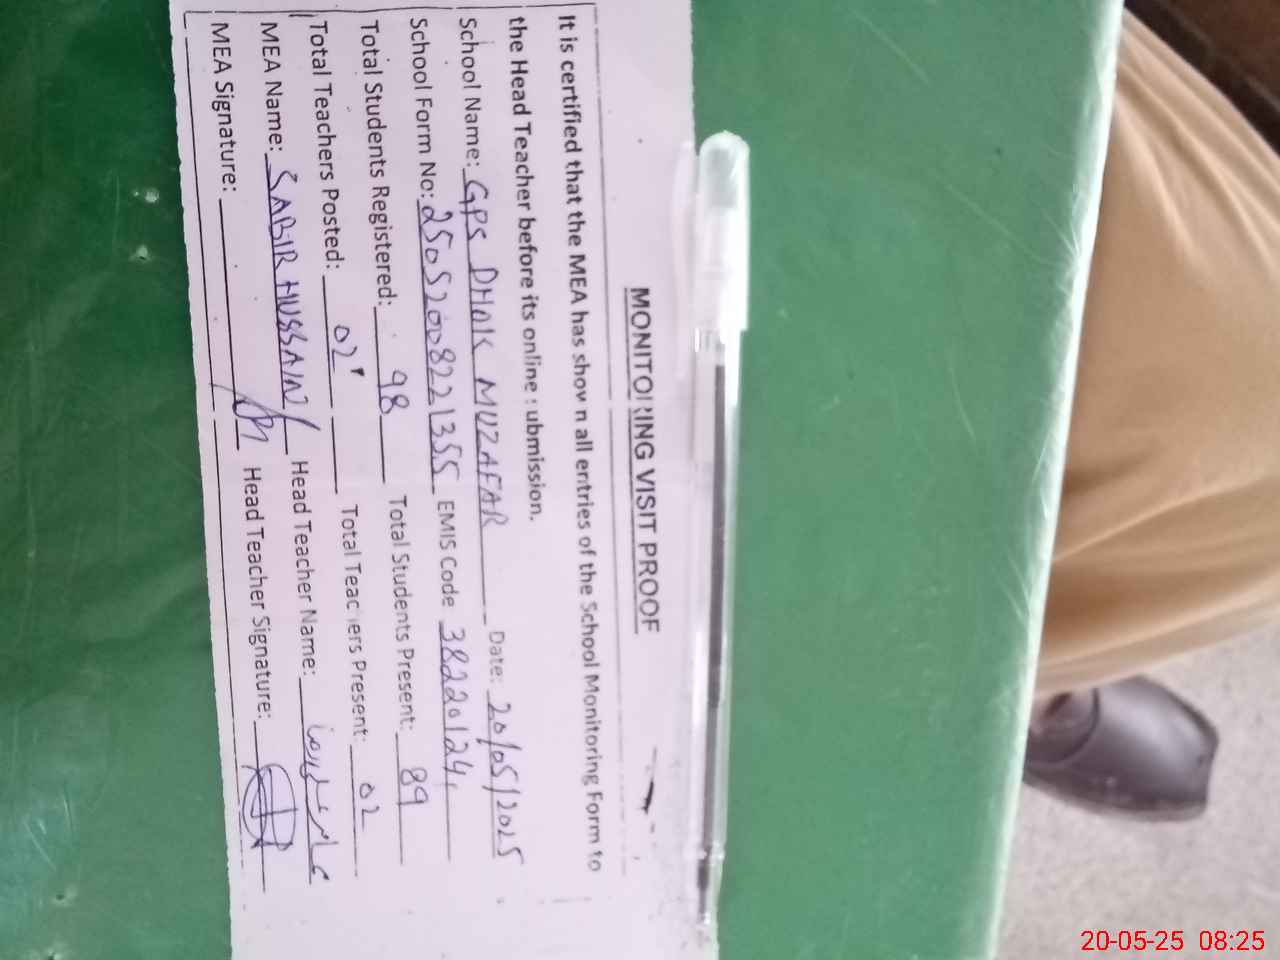 MONITORING VISIT PROOF
It is certified that the MEA has shown all entries of the School Monitoring Form to
the Head Teacher before its online submission.
School Name: GPS DHOK MUZAFAR Date: 20/05/2025
School Form No: 25052008221355 EMIS Code 38220124
Total Students Registered: 98 Total Students Present: 89
Total Teachers Posted: 02 Total Teachers Present: 02
MEA Name: SABIR HUSSAIN Head Teacher Name:
MEA Signature: Head Teacher Signature:
20-05-25 08:25